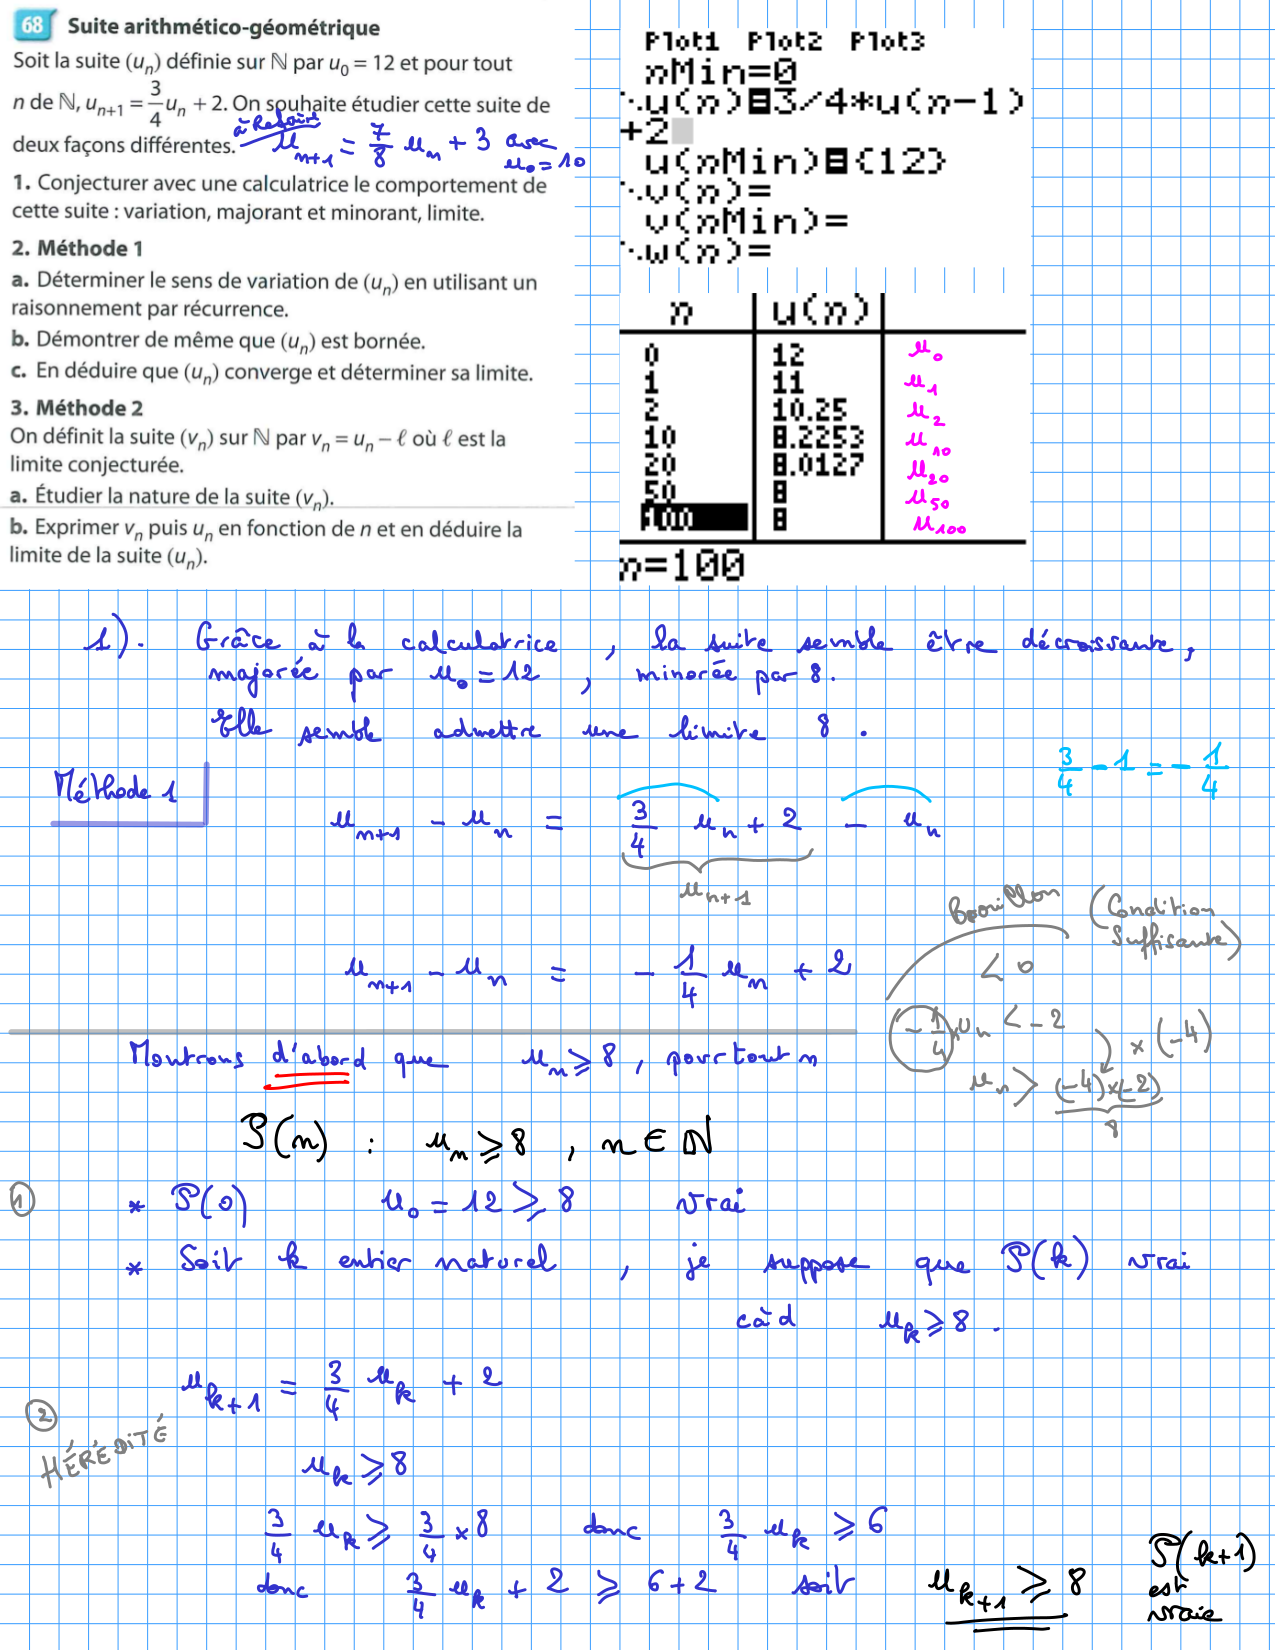 68 Suite arithmético-géométrique
Soit la suite (uₙ) définie sur ℕ par u₀ = 12 et pour tout
n de ℕ, uₙ₊₁ = 3/4 uₙ + 2. On souhaite étudier cette suite de
deux façons différentes.
à Refaire
uₙ₊₁ = 7/8 uₙ + 3 avec
u₀ = 10
1. Conjecturer avec une calculatrice le comportement de
cette suite : variation, majorant et minorant, limite.
2. Méthode 1
a. Déterminer le sens de variation de (uₙ) en utilisant un
raisonnement par récurrence.
b. Démontrer de même que (uₙ) est bornée.
c. En déduire que (uₙ) converge et déterminer sa limite.
3. Méthode 2
On définit la suite (vₙ) sur ℕ par vₙ = uₙ − ℓ où ℓ est la
limite conjecturée.
a. Étudier la nature de la suite (vₙ).
b. Exprimer vₙ puis uₙ en fonction de n et en déduire la
limite de la suite (uₙ).
Plot1 Plot2 Plot3
nMin=0
u(n)=3/4*u(n-1)
+2
u(nMin)={12}
v(n)=
v(nMin)=
w(n)=
n u(n)
0 12 u₀
1 11 u₁
2 10.25 u₂
10 8.2253 u₁₀
20 8.0127 u₂₀
50 8 u₅₀
100 8 u₁₀₀
n=100
1). Grâce à la calculatrice, la suite semble être décroissante,
majorée par u₀ = 12, minorée par 8.
Elle semble admettre une limite 8.
3/4 − 1 = − 1/4
Méthode 1
uₙ₊₁ − uₙ = 3/4 uₙ + 2 − uₙ
uₙ₊₁
Brouillon (Condition
Suffisante)
uₙ₊₁ − uₙ = − 1/4 uₙ + 2
< 0
− 1/4 × uₙ < −2
× (−4)
uₙ > (−4)×(−2)
8
Montrons d'abord que uₙ ⩾ 8, pour tout n
P(n) : uₙ ⩾ 8, n ∈ ℕ
① * P(0) u₀ = 12 ⩾ 8 vrai
* Soit k entier naturel, je suppose que P(k) vrai
càd uₖ ⩾ 8.
uₖ₊₁ = 3/4 uₖ + 2
② HÉRÉDITÉ
uₖ ⩾ 8
3/4 uₖ ⩾ 3/4 × 8 donc 3/4 uₖ ⩾ 6
donc 3/4 uₖ + 2 ⩾ 6+2 soit uₖ₊₁ ⩾ 8
P(k+1)
est
vraie